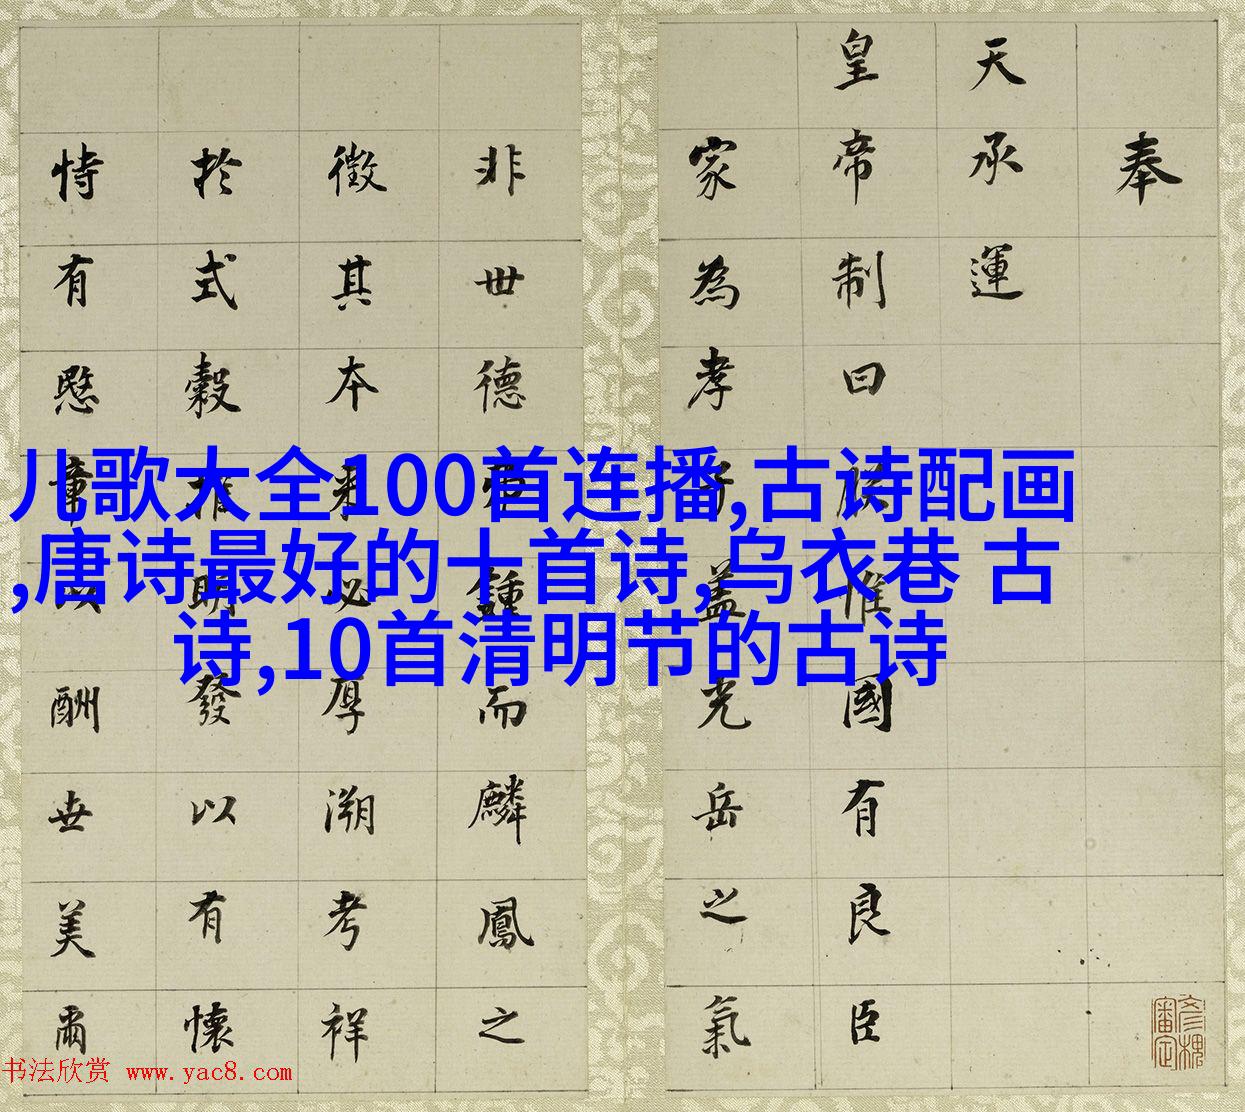 奉
天承運
皇帝制曰朕惟國有良臣
家為孝子蓋光岳之氣
非世德弗鍾而麟鳳之
徵其本来必厚溯考祥
於式穀推明發以有懷
特有愍章以酬世美爾
彥槐審定
儿歌大全100首连播,古诗配画
,唐诗最好的十首诗,乌衣巷 古
诗,10首清明节的古诗
书法欣赏 www.yac8.com